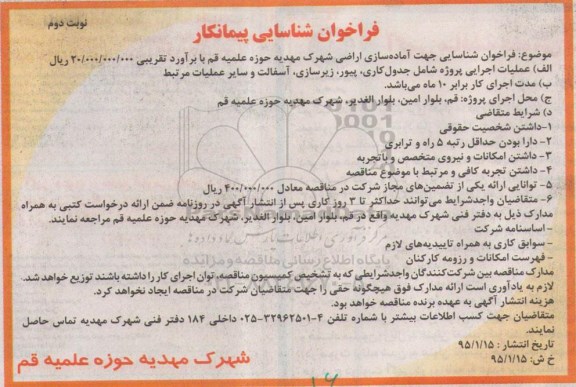 نوبت دوم
فراخوان شناسایی پیمانکار
موضوع: فراخوان شناسایی جهت آماده‌سازی اراضی شهرک مهدیه حوزه علمیه قم با برآورد تقریبی ۲۰/۰۰۰/۰۰۰/۰۰۰ ریال
الف) عملیات اجرایی پروژه شامل جدول‌کاری، پیور، زیرسازی، آسفالت و سایر عملیات مرتبط
ب) مدت اجرای کار برابر ۱۰ ماه می‌باشد.
ج) محل اجرای پروژه: قم، بلوار امین، بلوار الغدیر، شهرک مهدیه حوزه علمیه قم
د) شرایط متقاضی
۱-داشتن شخصیت حقوقی
۲- دارا بودن حداقل رتبه ۵ راه و ترابری
۳- داشتن امکانات و نیروی متخصص و باتجربه
۴- داشتن تجربه کافی و مرتبط با موضوع مناقصه
۵- توانایی ارائه یکی از تضمین‌های مجاز شرکت در مناقصه معادل ۴۰۰/۰۰۰/۰۰۰ ریال
۶- متقاضیان واجدشرایط می‌توانند حداکثر تا ۳ روز کاری پس از انتشار آگهی در روزنامه ضمن ارائه درخواست کتبی به همراه
مدارک ذیل به دفتر فنی شهرک مهدیه واقع در قم، بلوار امین، بلوار الغدیر، شهرک مهدیه حوزه علمیه قم مراجعه نمایند.
- اساسنامه شرکت
- سوابق کاری به همراه تاییدیه‌های لازم
- فهرست امکانات و رزومه کارکنان
مدارک مناقصه بین شرکت‌کنندگان واجدشرایطی که به تشخیص کمیسیون مناقصه، توان اجرای کار را داشته باشند توزیع خواهد شد.
لازم به یادآوری است ارائه مدارک فوق هیچگونه حقی را جهت متقاضیان شرکت در مناقصه ایجاد نخواهد کرد.
هزینه انتشار آگهی به عهده برنده مناقصه خواهد بود.
متقاضیان جهت کسب اطلاعات بیشتر با شماره تلفن ۴-۳۲۹۶۲۵۰۱-۰۲۵ داخلی ۱۸۴ دفتر فنی شهرک مهدیه تماس حاصل
نمایند.
تاریخ انتشار : ۹۵/۱/۱۵
خ ش: ۹۵/۱/۱۵
شهرک مهدیه حوزه علمیه قم